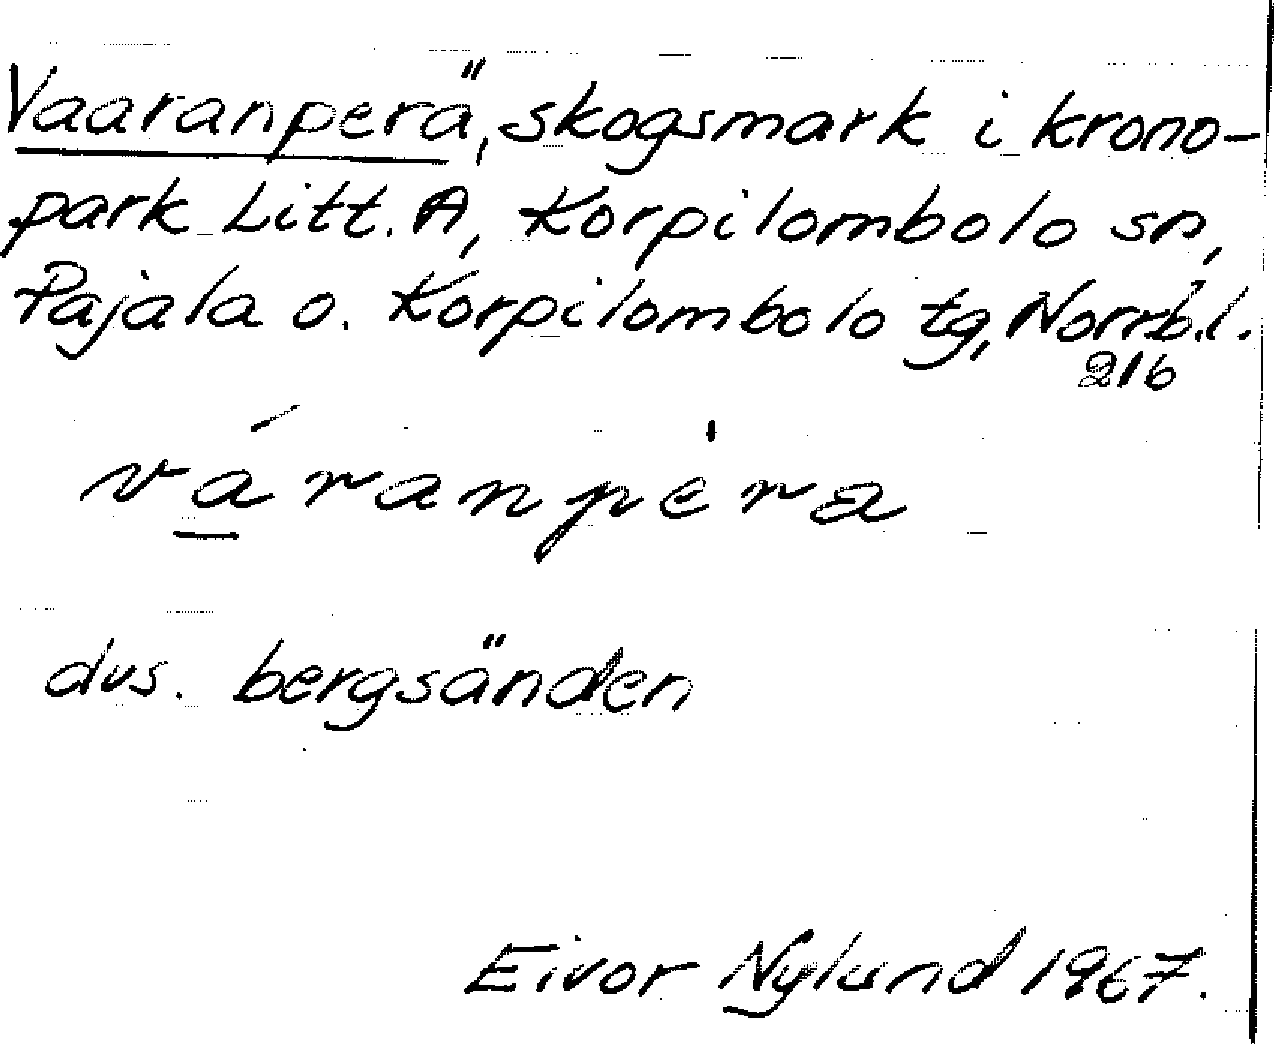 Vaaranperä, skogsmark i krono-
park Litt. A, Korpilombolo sn,
Pajala o. Korpilombolo tg, Norrb.l.
216
váranpèra
dvs. bergsänden
Eivor Nylund 1967.